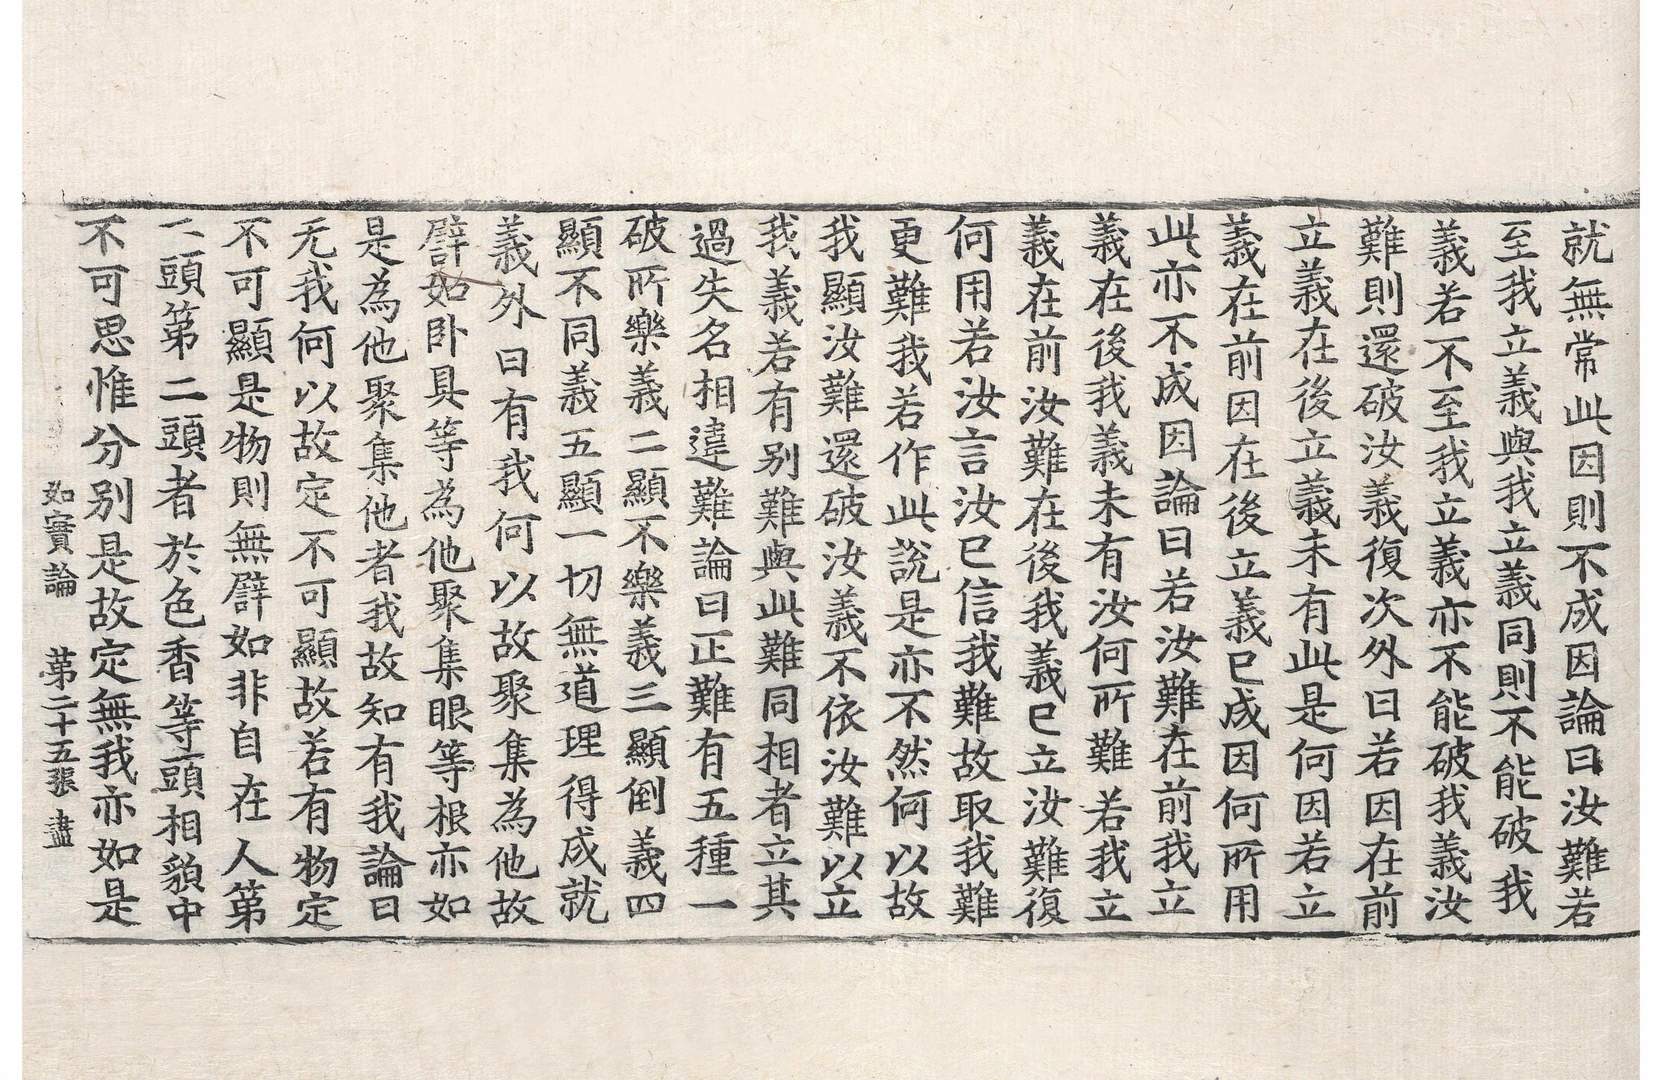 就無常此因則不成因論曰汝難若
至我立義與我立義同則不能破我
義若不至我立義亦不能破我義汝
難則還破汝義復次外曰若因在前
立義在後立義未有此是何因若立
義在前因在後立義已成因何所用
此亦不成因論曰若汝難在前我立
義在後我義未有汝何所難若我立
義在前汝難在後我義已立汝難復
何用若汝言汝已信我難故取我難
更難我若作此說是亦不然何以故
我顯汝難還破汝義不依汝難以立
我義若有別難與此難同相者立其
過失名相違難論曰正難有五種一
破所樂義二顯不樂義三顯倒義四
顯不同義五顯一切無道理得成就
義外曰有我何以故聚集為他故
譬如卧具等為他聚集眼等根亦如
是為他聚集他者我故知有我論曰
无我何以故定不可顯故若有物定
不可顯是物則無譬如非自在人第
二頭第二頭者於色香等頭相貌中
不可思惟分別是故定無我亦如是
如實論 第二十五張 盡